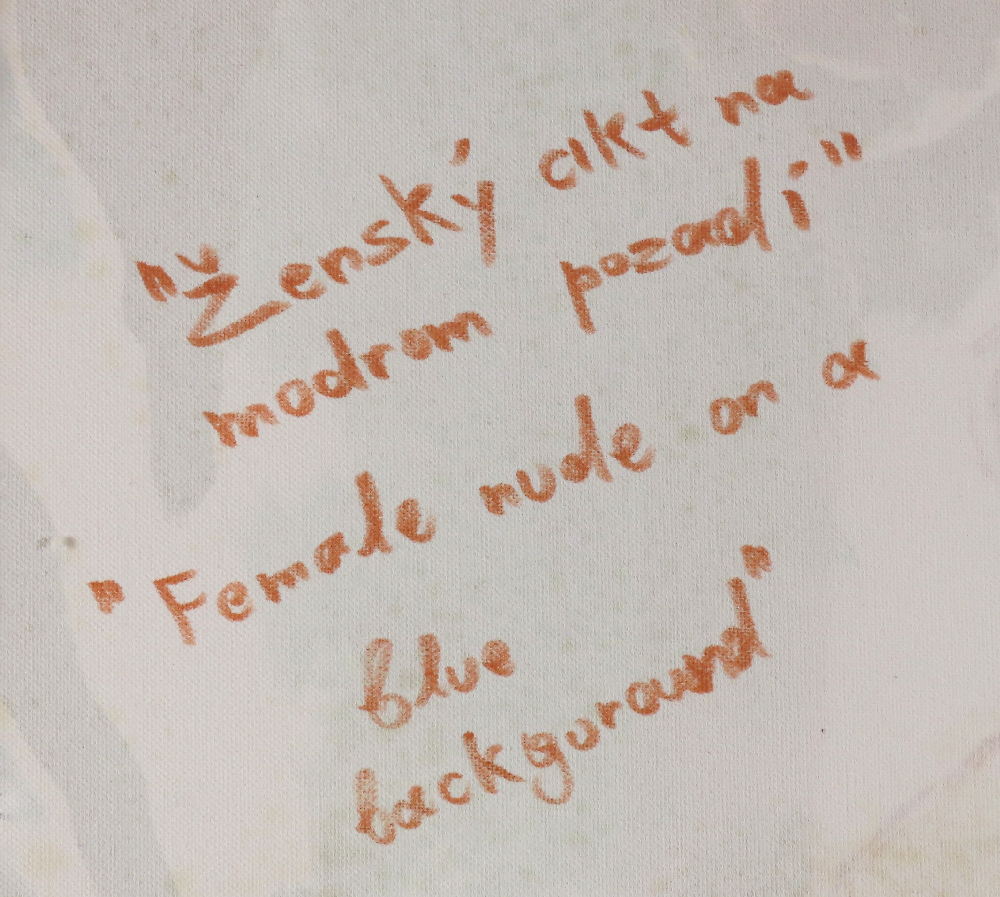 "Ženský akt na
modrom pozadí"
"Female nude on a
blue
backguraund"